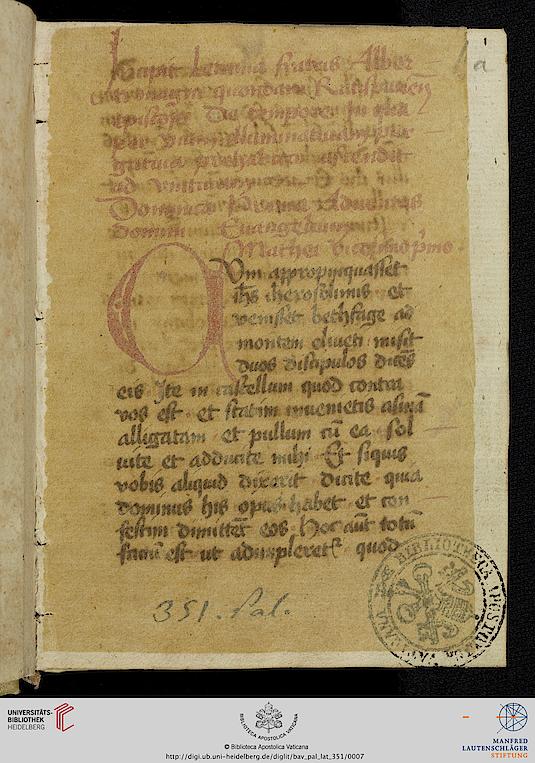 fratris Alber
quondam
De tempore In qua
ascendit
ad
Dominica Aduentus
domini Euangelium
Mathei vicesimo primo
Cum appropinquasset
ihs iherosolimis et
venisset bethfage ad
montem oliueti misit
duos discipulos dices
eis Ite in castellum quod contra
vos est et statim inuenietis asinā
alligatam et pullum cū ea sol
uite et adducite mihi Et siquis
vobis aliquid dixerit dicite quia
dominus his opus habet et con
festim dimittet eos Hoc aūt totū
factū est ut adimpleret quod
351. Pal.
a
BIBLIOTECA APOSTOLICA VATICANA
UNIVERSITÄTS-
BIBLIOTHEK
HEIDELBERG
BIBLIOTECA APOSTOLICA VATICANA
© Biblioteca Apostolica Vaticana
http://digi.ub.uni-heidelberg.de/diglit/bav_pal_lat_351/0007
MANFRED
LAUTENSCHLÄGER
STIFTUNG